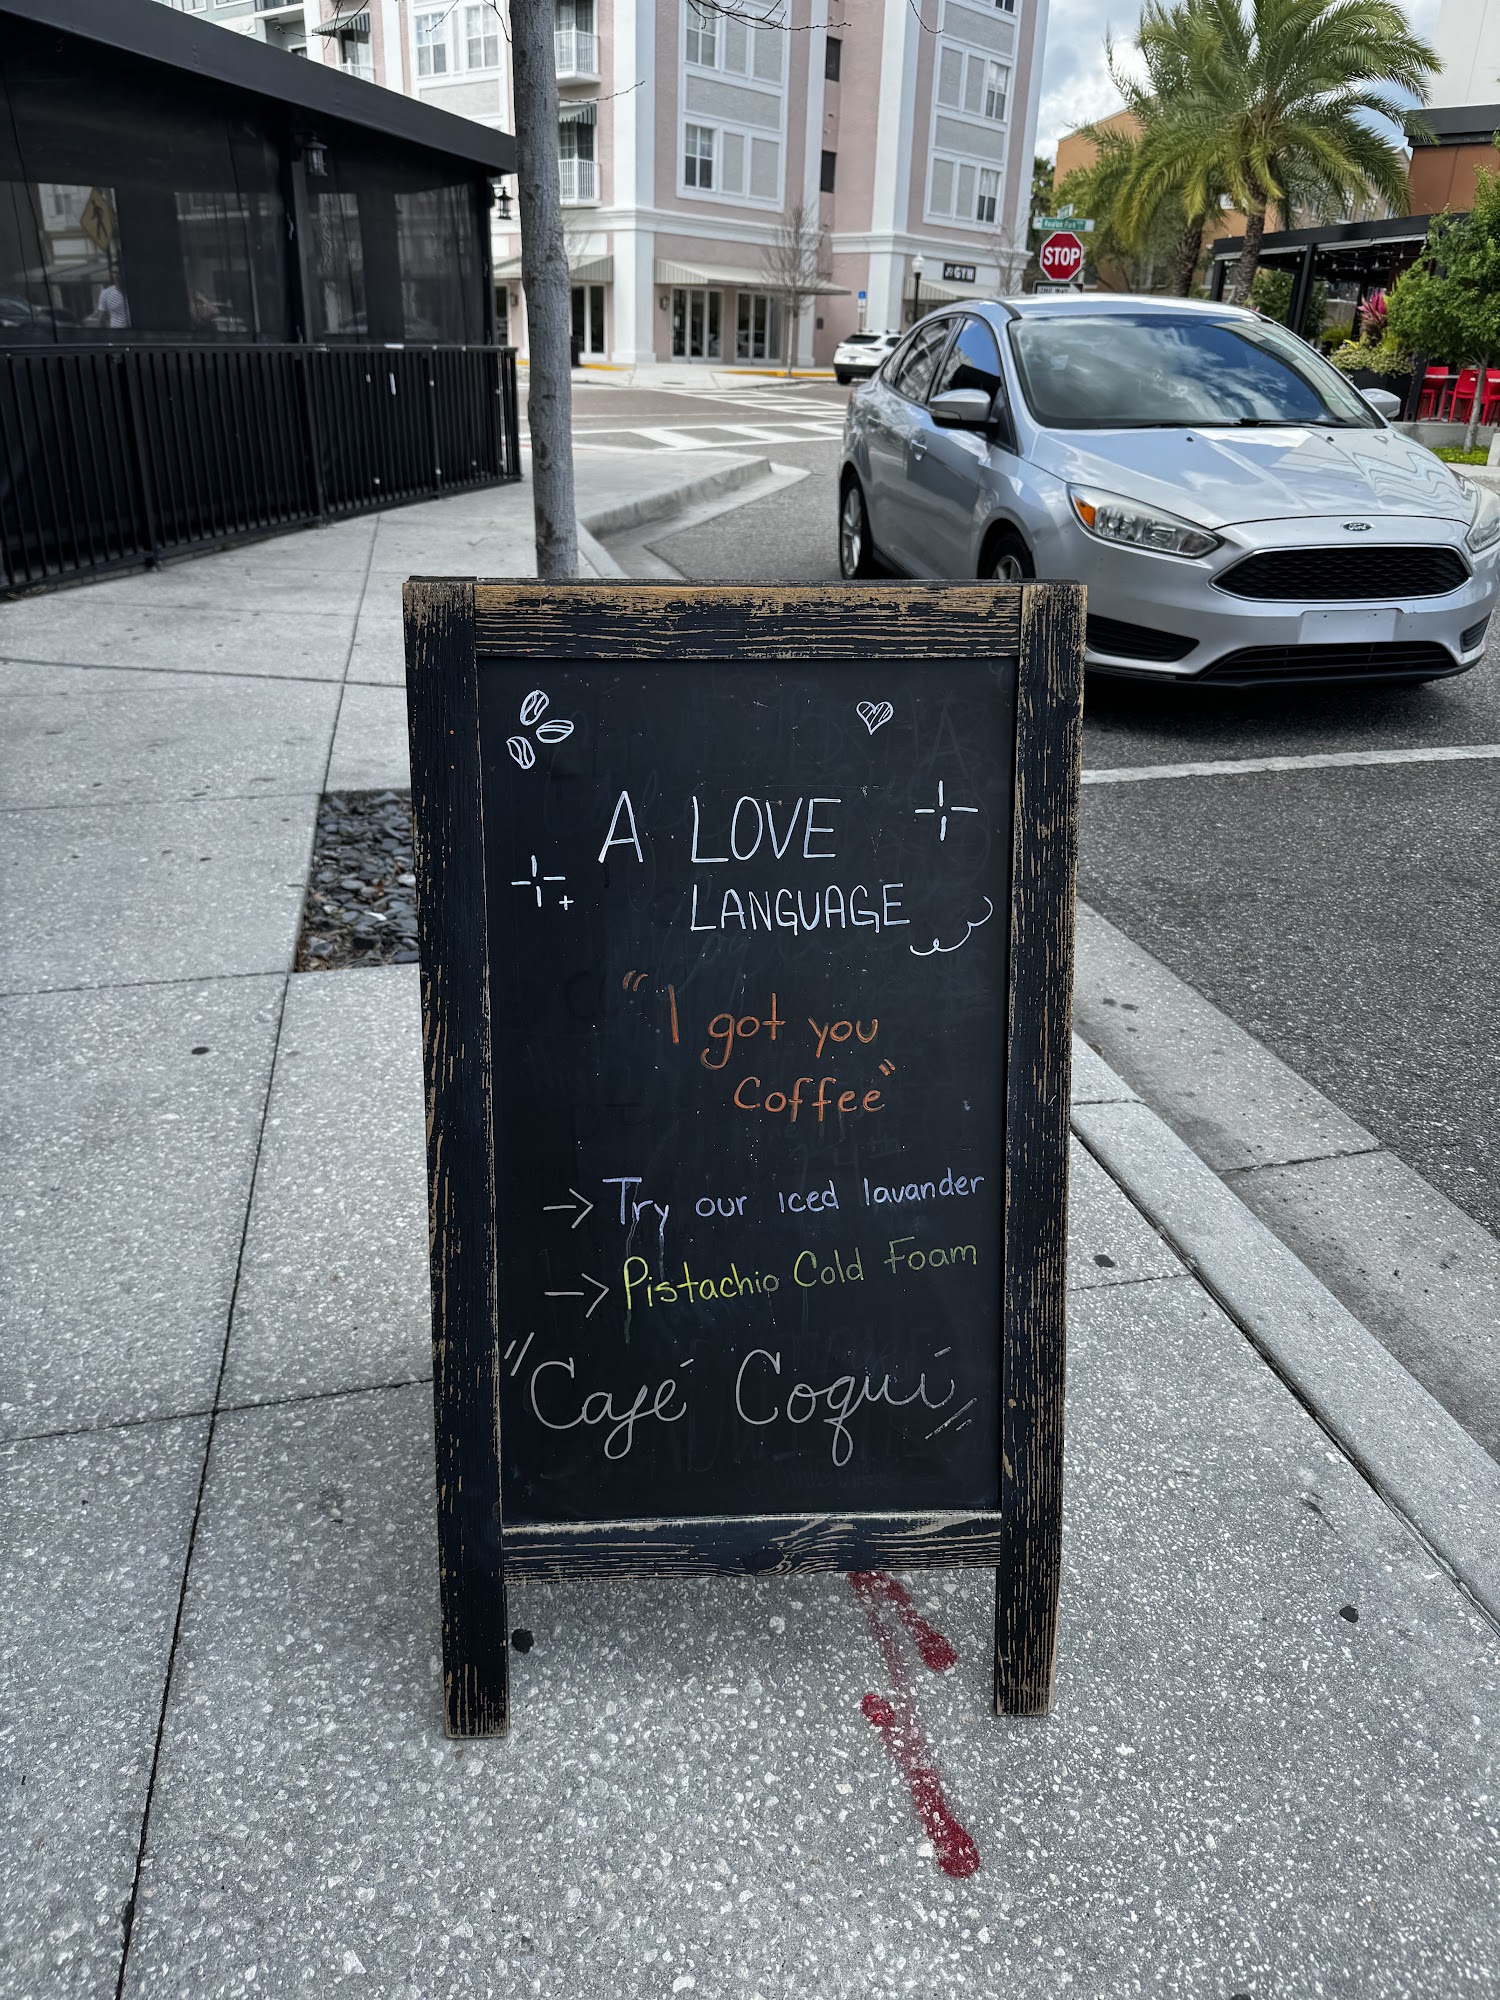 STOP
GYM
Ford
A LOVE
LANGUAGE
"I got you
Coffee"
→ Try our iced lavander
→ Pistachio Cold Foam
"Café Coquí